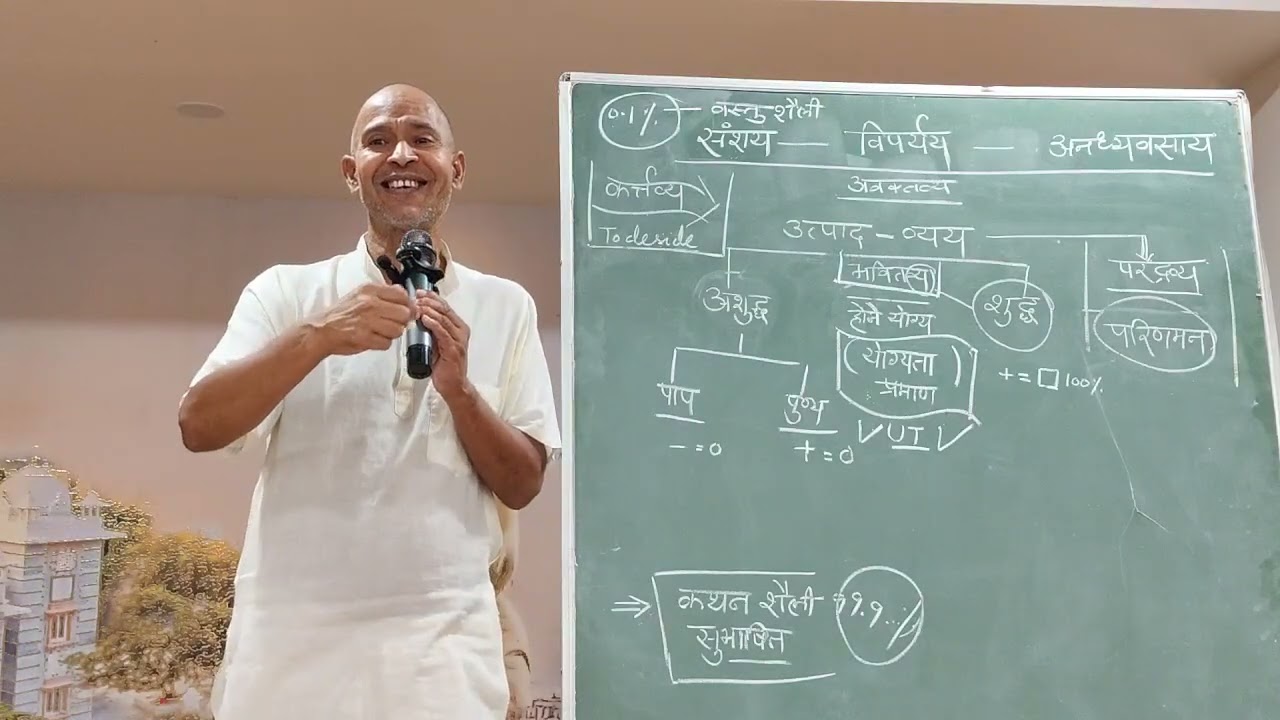 0.1% — वस्तु शैली
संशय — विपर्यय — अनध्यवसाय
कर्त्तव्य
To deside
अवक्तव्य
उत्पाद - व्यय
अशुद्ध
भवितव्य
शुद्ध
परद्रव्य
परिणमन
होने योग्य
(योग्यता)
प्रमाण
+ = □ 100%
पाप
पुण्य
- = 0
+ = 0
⇒ कथन शैली - 99.9...%
सुभाषित